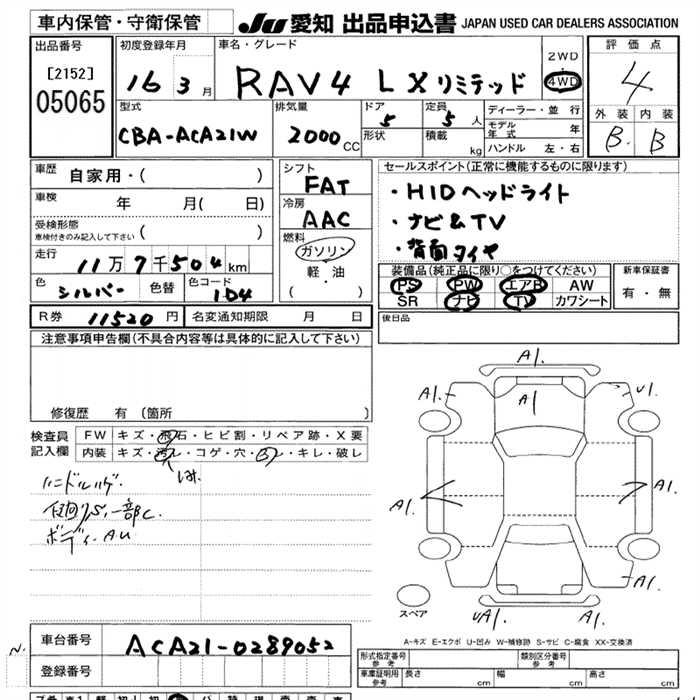 車内保管・守衛保管
JU 愛知 出品申込書 JAPAN USED CAR DEALERS ASSOCIATION
出品番号
[2152]
05065
初度登録年月
16 3 月
車名・グレード
RAV4 LXリミテッド
2WD
・
4WD
評価点
4
外装 内装
B B
型式
CBA-ACA21W
排気量
2000 CC
ドア
5
形状
定員
5 人
積載
kg
ディーラー・並行
モデル年式 年
ハンドル 左・右
車歴
自家用・( )
車検
年 月( 日)
受検形態
車検付きのみ記入して下さい ( )
走行
11万7千504km
色
シルバー
色替
色コード
1D4
シフト
FAT
冷房
AAC
燃料
ガソリン
軽・油
( )
セールスポイント(正常に機能するものに限ります)
・HIDヘッドライト
・ナビ&TV
・背面タイヤ
装備品(純正品に限り○をつけてください)
PS PW エアB AW
SR ナビ TV カワシート
新車保証書
有・無
R券 11520 円
名変通知期限 月 日
後日品
注意事項申告欄(不具合内容等は具体的に記入して下さい)
修復歴 有 (箇所 )
検査員
記入欄
FW キズ・飛石・ヒビ割・リペア跡・X要
内装 キズ・汚レ・コゲ・穴・スレ・キレ・破レ
ハンドルハゲ.
下回りS.一部C.
ボディ.AU
A1.
A1.
A1
U1.
A1.
A1.
A1.
UA1.
A1.
スペア
A-キズ E-エクボ U-凹み W-補修跡 S-サビ C-腐食 XX-交換済
車台番号
ACA21-0289052
登録番号
N.
形式指定番号
参考
類別区分番号
参考
車庫証明用
参考
長さ cm
幅 cm
高さ cm